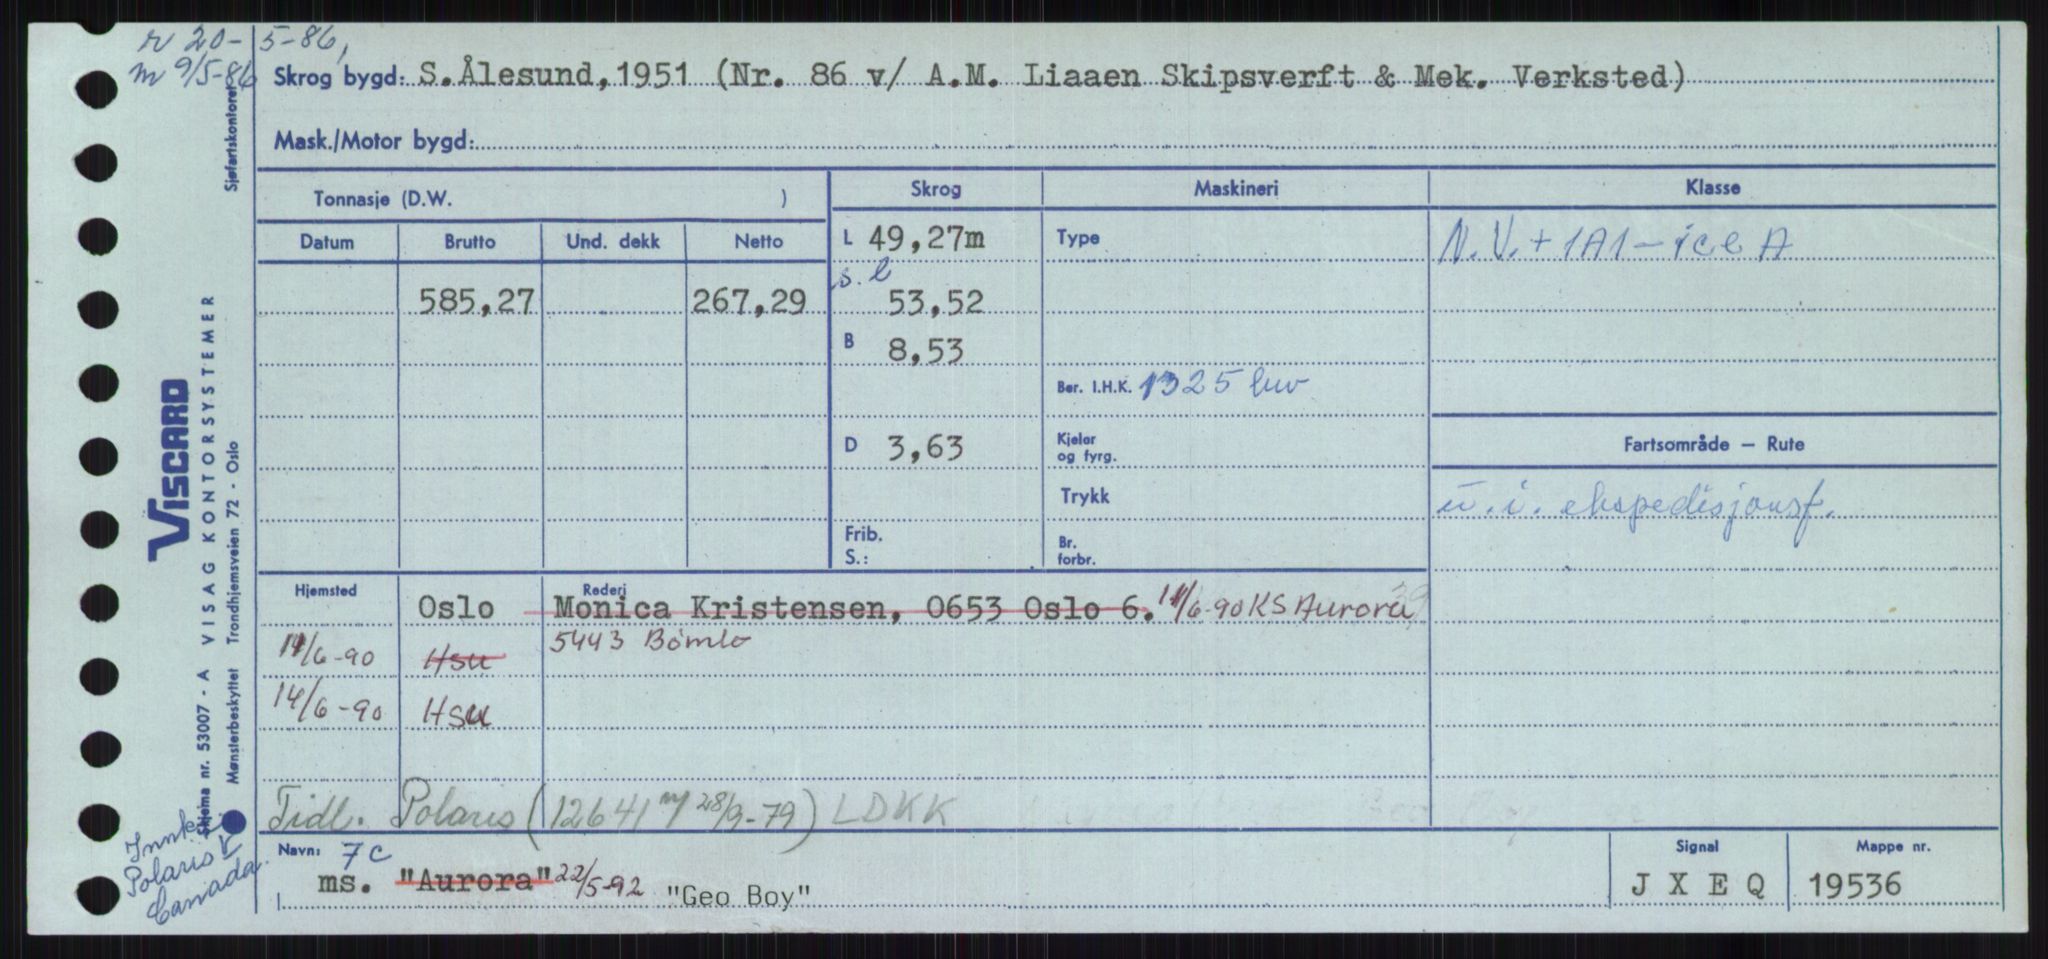 r 20-5-86,
m 9/5-86
Skrog bygd: S.Ålesund,1951 (Nr. 86 v/ A.M. Liaaen Skipsverft & Mek. Verksted)
Sjøfartskontoret
Mask./Motor bygd:
Tonnasje (D.W. )
Skrog
Maskineri
Klasse
Datum
Brutto
Und. dekk
Netto
L 49,27m
Type
N.V. + 1A1 - ice A
s. l
585,27
267,29
53,52
B 8,53
Ber. I.H.K. 1325 hw
D 3,63
Kjeler
og fyrg.
Fartsområde — Rute
Trykk
u.i. ekspedisjonsf.
Frib.
S.:
Br.
forbr.
Hjemsted
Rederi
Oslo Monica Kristensen, 0653 Oslo 6. 11/6-90 KS Aurora, 39
5443 Bømlo
11/6-90 Hsu
14/6-90 Hsu
Tidl. Polaris (12641 m/ 28/9-79) LDKK
Navn: 7c
ms. "Aurora" 22/5-92 "Geo Boy"
Signal
J X E Q
Mappe nr.
19536
VISCARD
VISAG KONTORSYSTEMER
Skjema nr. 53007 - A
Mønsterbeskyttet Trondhjemsveien 72 - Oslo
Polaris
Canada.